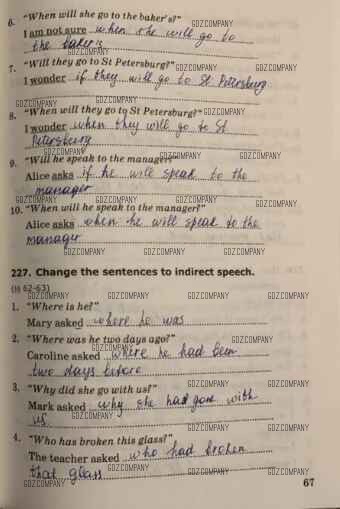 6. "When will she go to the baker's?"
I am not sure when she will go to
the baker's
7. "Will they go to St Petersburg?"
I wonder if they will go to St Petersburg
8. "When will they go to St Petersburg?"
I wonder when they will go to St
Petersburg
9. "Will he speak to the manager?"
Alice asks if he will speak to the
manager
10. "When will he speak to the manager?"
Alice asks when he will speak to the
manager
227. Change the sentences to indirect speech.
(§ 62-63)
1. "Where is he?"
Mary asked where he was
2. "Where was he two days ago?"
Caroline asked where he had been
two days before
3. "Why did she go with us?"
Mark asked why she had gone with
us
4. "Who has broken this glass?"
The teacher asked who had broken
that glass
67
GDZ.COMPANY